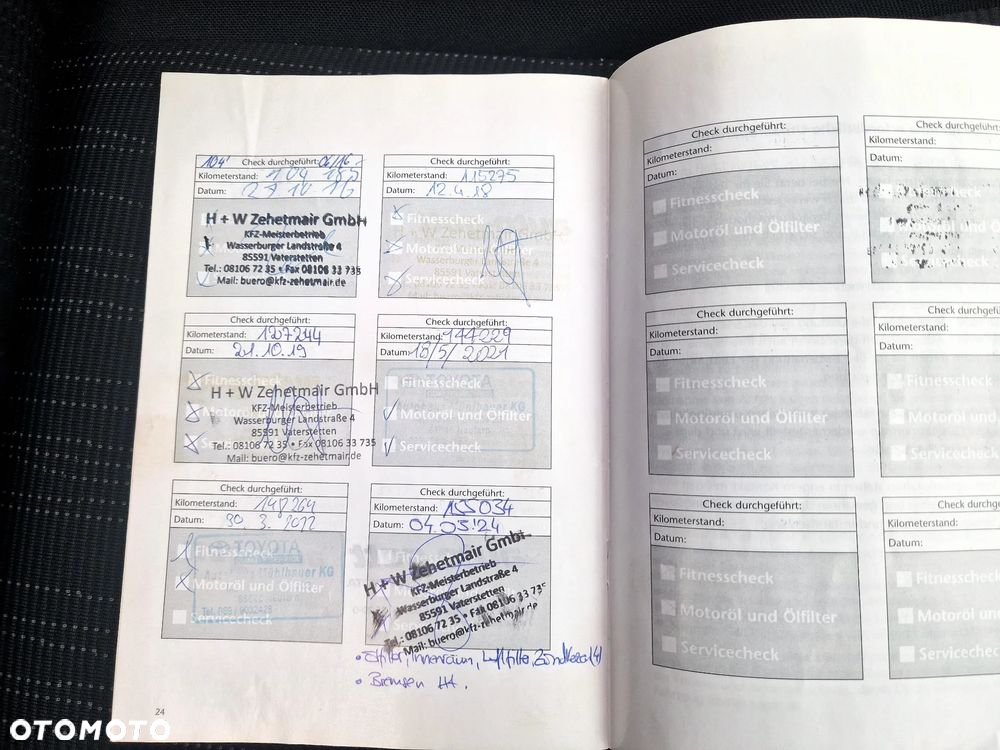 104' Check durchgeführt: 06/16
Kilometerstand: 104 185
Datum: 27 10 16
H + W Zehetmair GmbH
KFZ-Meisterbetrieb
Wasserburger Landstraße 4
85591 Vaterstetten
Tel.: 08106 72 35 • Fax 08106 33 735
Mail: buero@kfz-zehetmair.de
Check durchgeführt:
Kilometerstand: 115275
Datum: 12.4.18
Fitnesscheck
Motoröl und Ölfilter
Servicecheck
Wasserburger Landstraße 4
85591 Vaterstetten
Check durchgeführt:
Kilometerstand: 127244
Datum: 21.10.19
Fitnesscheck
H + W Zehetmair GmbH
KFZ-Meisterbetrieb
Wasserburger Landstraße 4
85591 Vaterstetten
Tel.: 08106 72 35 • Fax 08106 33 735
Mail: buero@kfz-zehetmair.de
Check durchgeführt:
Kilometerstand: 144229
Datum: 18/5/2021
Fitnesscheck
Motoröl und Ölfilter
Servicecheck
Check durchgeführt:
Kilometerstand: 148264
Datum: 30.3.2022
Fitnesscheck
Motoröl und Ölfilter
Servicecheck
Check durchgeführt:
Kilometerstand: 155034
Datum: 04.03.'24
H + W Zehetmair GmbH
KFZ-Meisterbetrieb
Wasserburger Landstraße 4
85591 Vaterstetten
Tel.: 08106 72 35 • Fax 08106 33 735
Mail: buero@kfz-zehetmair.de
Innenraum, Luftfilter,
• Bremsen HA.
24
Check durchgeführt:
Kilometerstand:
Datum:
Fitnesscheck
Motoröl und Ölfilter
Servicecheck
Check durchgefü
Kilometerstand:
Datum:
Check durchgeführt:
Kilometerstand:
Datum:
Fitnesscheck
Motoröl und Ölfilter
Servicecheck
Check durchgefü
Kilometerstand:
Datum:
Fitnesscheck
Motoröl und Ö
Servicecheck
Check durchgeführt:
Kilometerstand:
Datum:
Fitnesscheck
Motoröl und Ölfilter
Servicecheck
Check durchg
Kilometerstand:
Datum:
Fitnesscheck
Motoröl und
Servicecheck
OTOMOTO